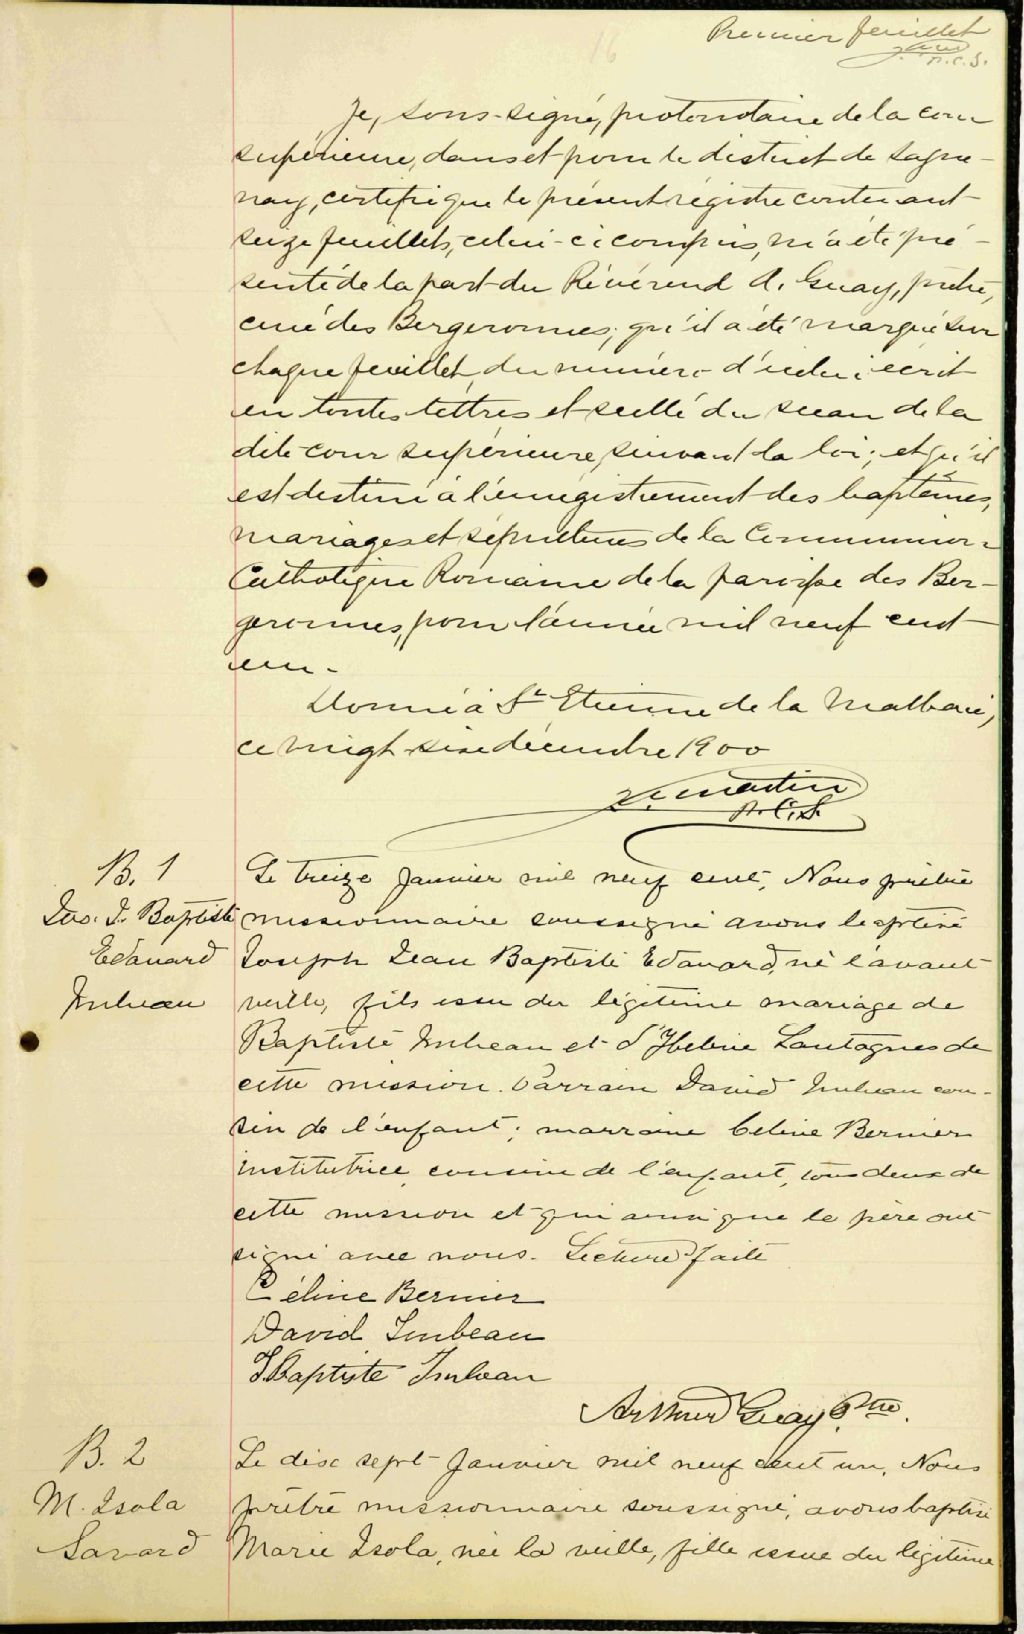 Premier feuillet
P.C.S.
Je, sous-signé, protonotaire de la cour
supérieure, dans et pour le district de Sague-
nay, certifie que le présent régistre contenant
seize feuillets, celui-ci compris, m'a été pré-
senté de la part du Révérend A. Guay, prêtre,
curé des Bergeronnes; qu'il a été marqué sur
chaque feuillet du numéro d'icelui écrit
en toutes lettres et scellé du sceau de la
dite cour supérieure, suivant la loi; et qu'il
est destiné à l'enrégistrement des baptêmes,
mariages et sépultures de la Communion
Catholique Romaine de la paroisse des Ber-
geronnes, pour l'année mil neuf cent
un.
Donné à St Etienne de la Malbaie,
ce vingt six décembre 1900
Martin
P.C.S.
B. 1
Jos. J. Baptiste
Edouard
Imbeau
Le treize Janvier mil neuf cent, Nous prêtre
missionnaire soussigné avons baptisé
Joseph Jean Baptiste Edouard, né l'avant
veille, fils issu du légitime mariage de
Baptiste Imbeau et d'Hélène Lantagnes de
cette mission. Parrain David Imbeau cou-
sin de l'enfant; marraine Celine Bernier
institutrice cousine de l'enfant, tous deux de
cette mission et qui ainsi que le père ont
signé avec nous. Lecture faite
Céline Bernier
David Imbeau
J.Baptiste Imbeau
Arthur Guay Ptre.
B. 2
M. Isola
Savard
Le dix sept Janvier mil neuf cent un, Nous
prêtre missionnaire soussigné, avons baptisé
Marie Isola, née la veille, fille issue du légitime